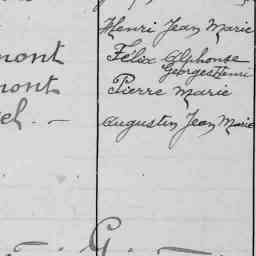 Henri Jean Marie
mont Félix Alphonse
Georges Henri
mont Pierre Marie
el. - Augustin Jean Marie
G